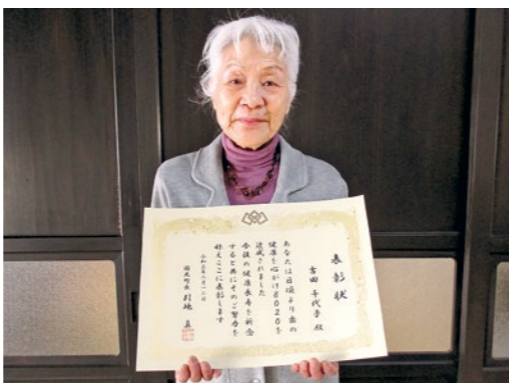 表彰状
吉田 千代子 殿
あなたは日頃より歯の
健康を心がけ8020を
達成されました
今後の健康長寿を祈念
すると共にそのご努力を
称えここに表彰します
令和三年二月一二日
国見町長 引地 真